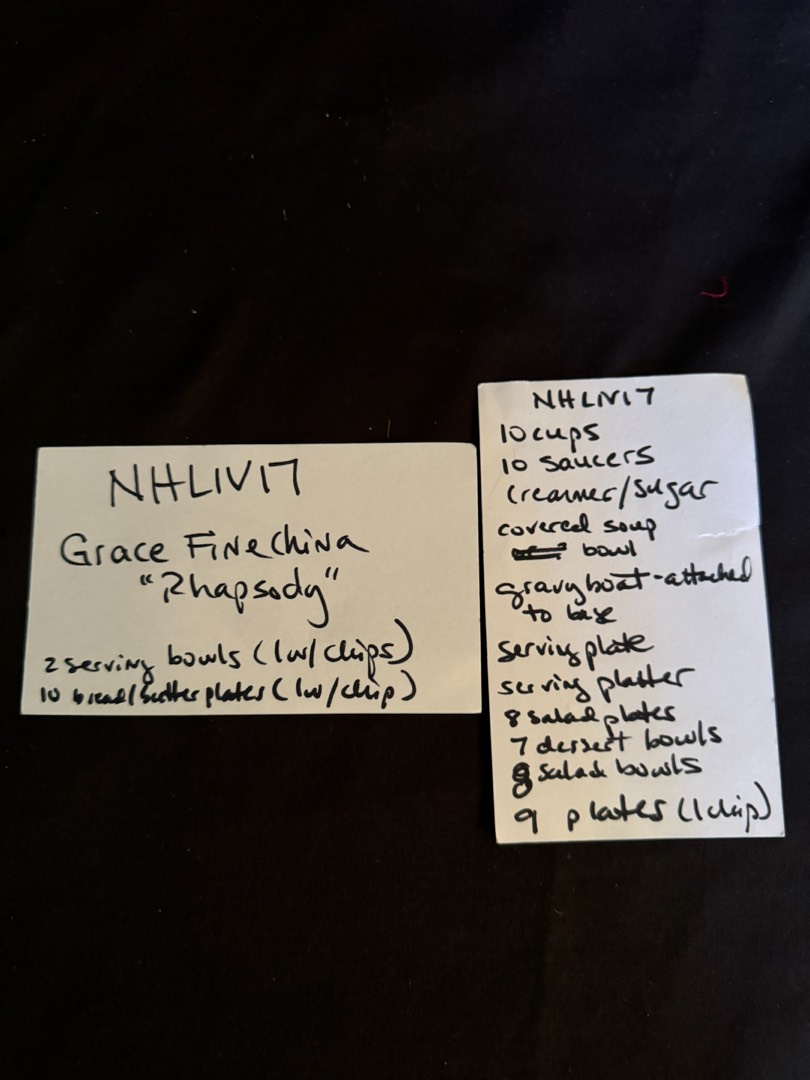 NHLIV17
Grace Fine China
"Rhapsody"
2 serving bowls (1w/chips)
10 bread/butter plates (1w/chip)
NHLIV17
10 cups
10 saucers
Creamer/sugar
covered soup
bowl
gravy boat - attached
to base
serving plate
serving platter
8 salad plates
7 dessert bowls
8 salad bowls
9 plates (1 chip)